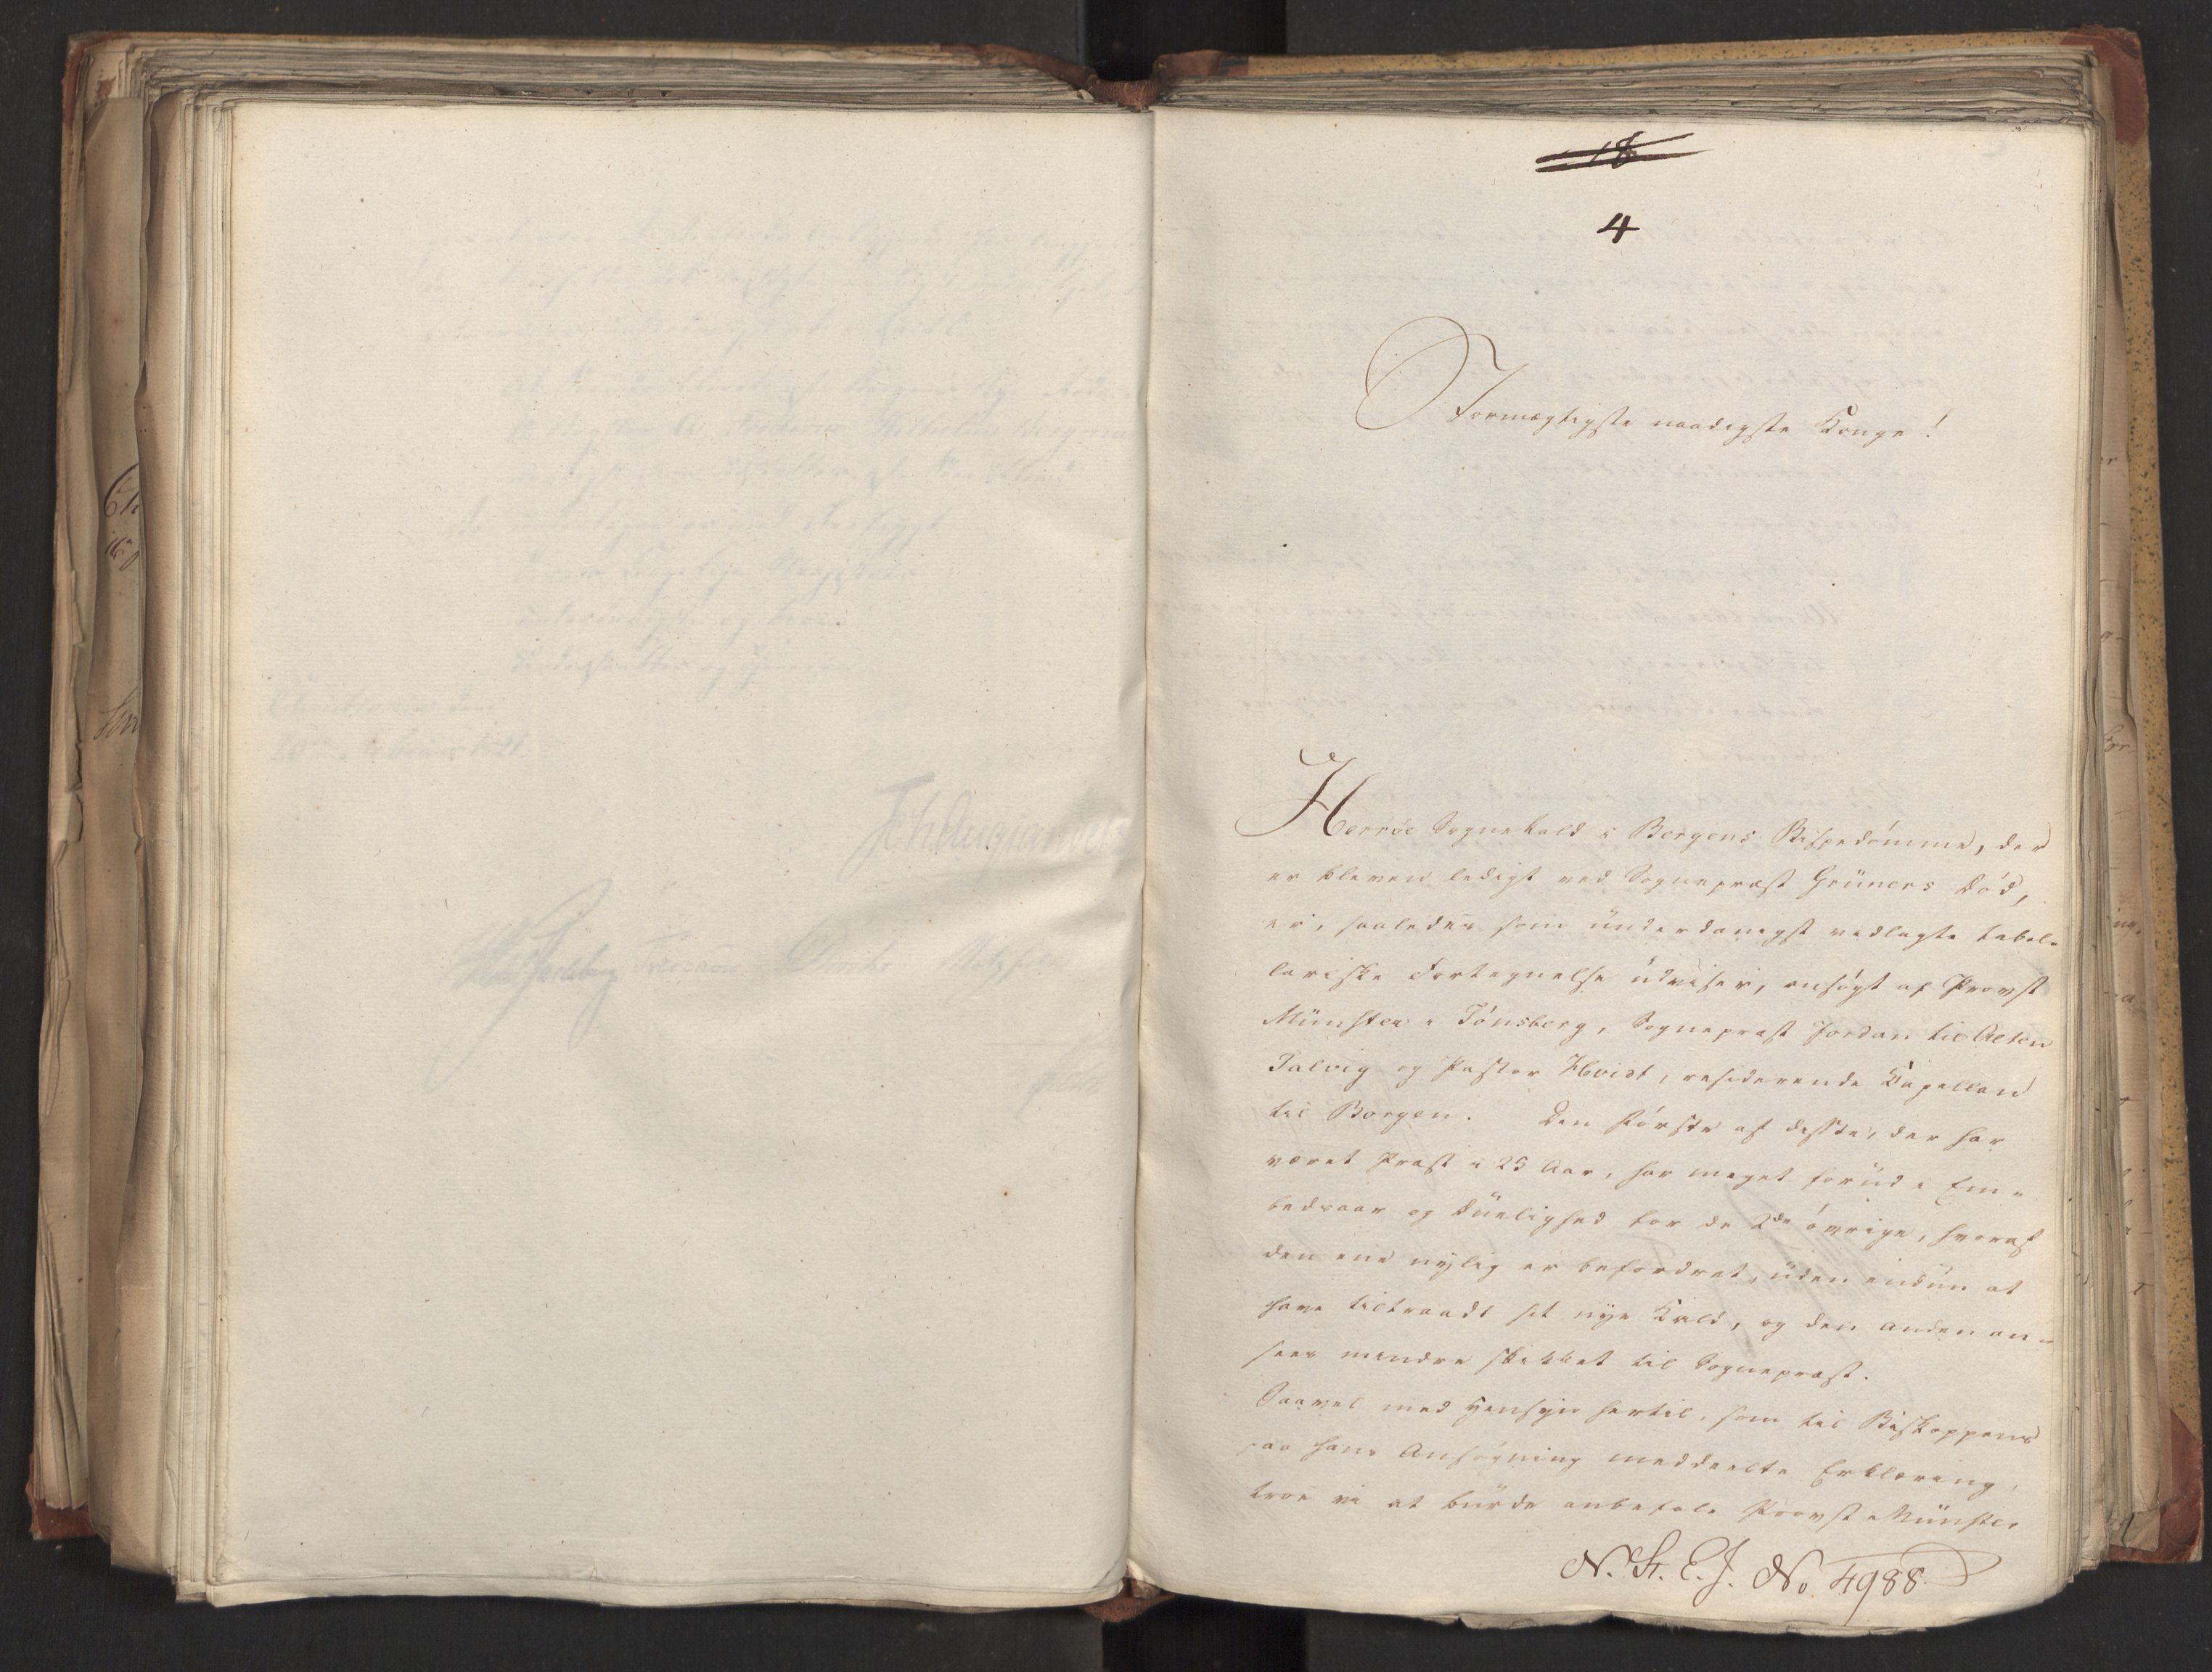 18
4
Stormægtigste naadigste Konge!
Herröe Sognekald i Bergens Bispedömme, der
er bleven ledigt ved Sognepræst Grüners Död,
er, saaledes som underdanigst vedlagte tabel-
lariske Fortegnelse udviser, ansögt af Provst
Münster i Tönsberg, Sognepræst Jordan til Alten
Talvig og Pastor Hvist, residerende Kapellan
til Borgen. Den förste af disse, der har
været Præst i 25 Aar, har meget forud i Em-
bedsaar og Duelighed for de 2de övrige, hvoraf
den ene nylig er befordret, uden endnu at
have tiltraadt sit nye Kald, og den anden an-
sees mindre skikket til Sognepræst.
Saavel med Hensyn hertil, som til Biskoppens
paa hans Ansögning meddeelte Erklæring,
troe vi at burde anbefale Provst Münster
N. St. E. J. No. 4988.